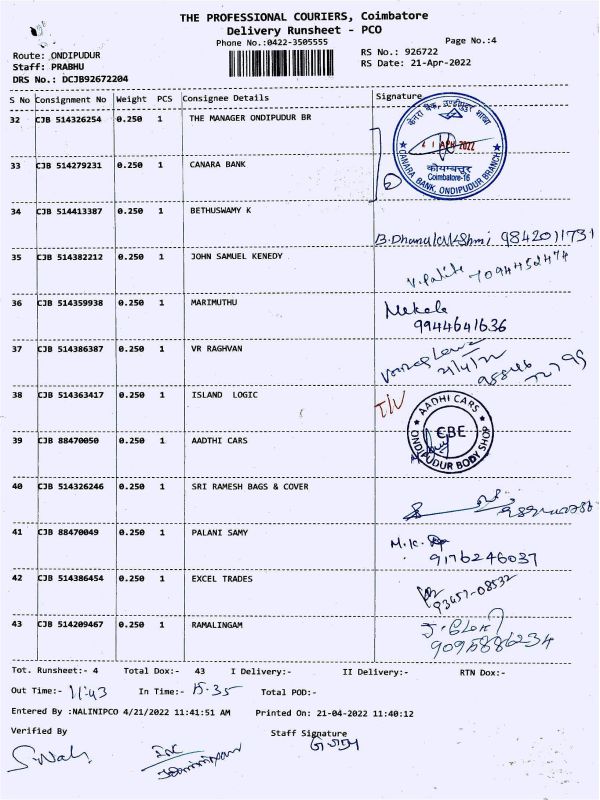 THE PROFESSIONAL COURIERS, Coimbatore
Delivery Runsheet - PCO
Phone No.:0422-3505555
Page No.:4
Route: ONDIPUDUR
RS No.: 926722
Staff: PRABHU
RS Date: 21-Apr-2022
DRS No.: DCJB92672204
S No Consignment No Weight PCS Consignee Details Signature
32 CJB 514326254 0.250 1 THE MANAGER ONDIPUDUR BR
केनरा बैंक,
21 APR 2022
कोयम्बत्तूर
Coimbatore-16
CANARA BANK, ONDIPUDUR BRANCH
33 CJB 514279231 0.250 1 CANARA BANK
34 CJB 514413387 0.250 1 BETHUSWAMY K
9842011731
35 CJB 514382212 0.250 1 JOHN SAMUEL KENEDY
7094452474
36 CJB 514359938 0.250 1 MARIMUTHU
Mekala
9944641636
37 CJB 514386387 0.250 1 VR RAGHVAN
21/4/22
38 CJB 514363417 0.250 1 ISLAND LOGIC
AADHI CARS
CBE
ONDIPUDUR BODY SHOP
39 CJB 88470050 0.250 1 AADTHI CARS
40 CJB 514326246 0.250 1 SRI RAMESH BAGS & COVER
41 CJB 88470049 0.250 1 PALANI SAMY
M.K.
9176246037
42 CJB 514386454 0.250 1 EXCEL TRADES
93657-08532
43 CJB 514209467 0.250 1 RAMALINGAM
9095886234
Tot. Runsheet:- 4 Total Dox:- 43 I Delivery:- II Delivery:- RTN Dox:-
Out Time:- 11:43 In Time:- 15.35 Total POD:-
Entered By :NALINIPCO 4/21/2022 11:41:51 AM Printed On: 21-04-2022 11:40:12
Verified By
Staff Signature